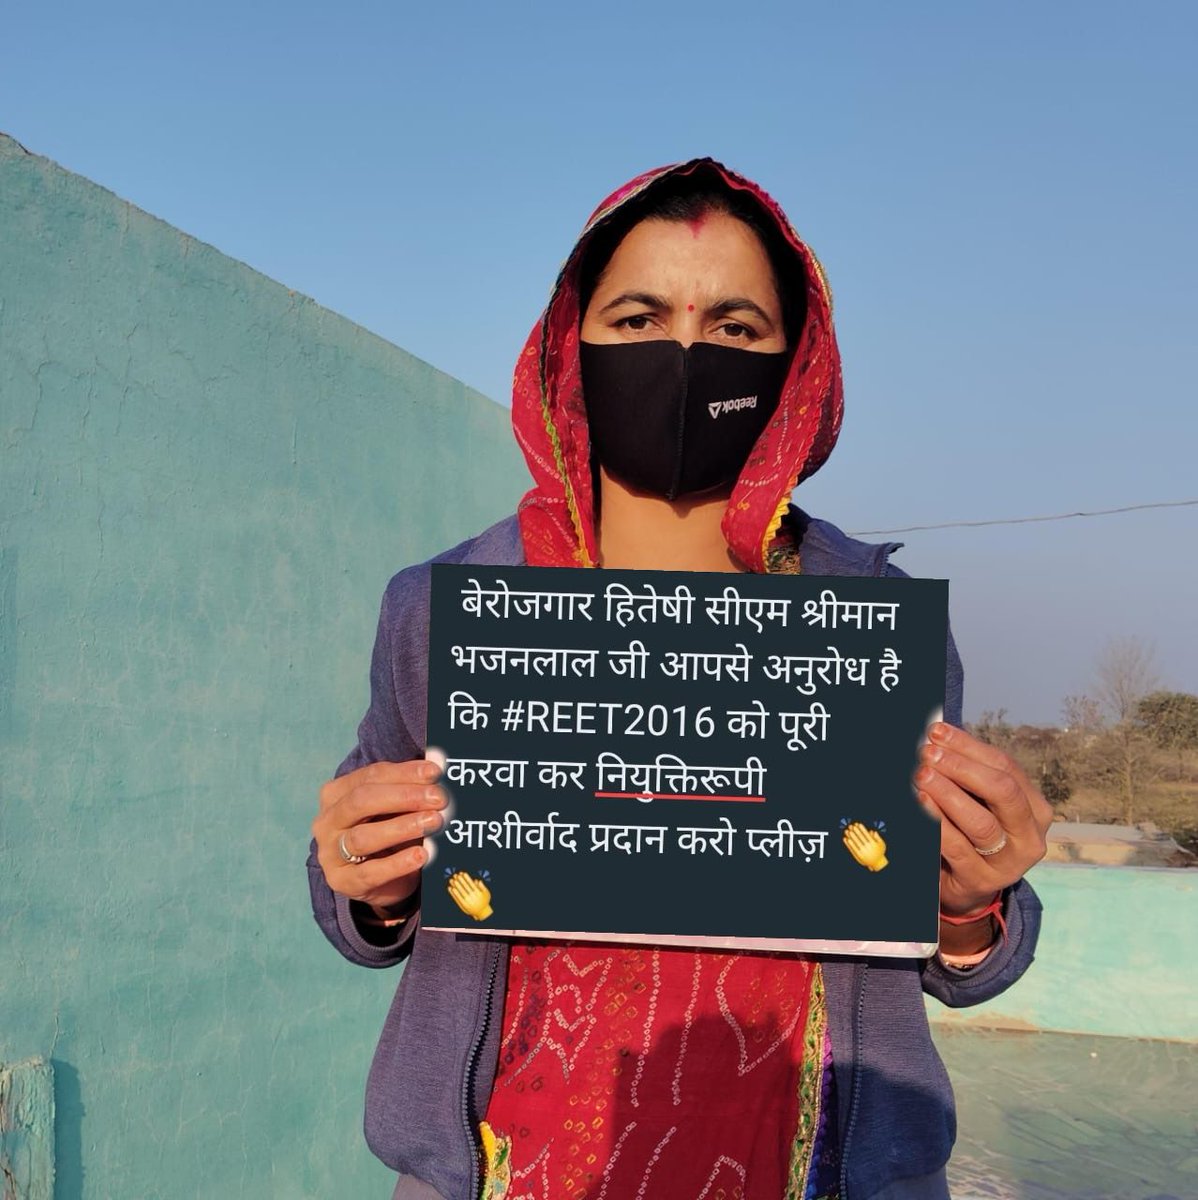 Reebok
बेरोजगार हितेषी सीएम श्रीमान
भजनलाल जी आपसे अनुरोध है
कि #REET2016 को पूरी
करवा कर नियुक्तिरूपी
आशीर्वाद प्रदान करो प्लीज़ 👏
👏